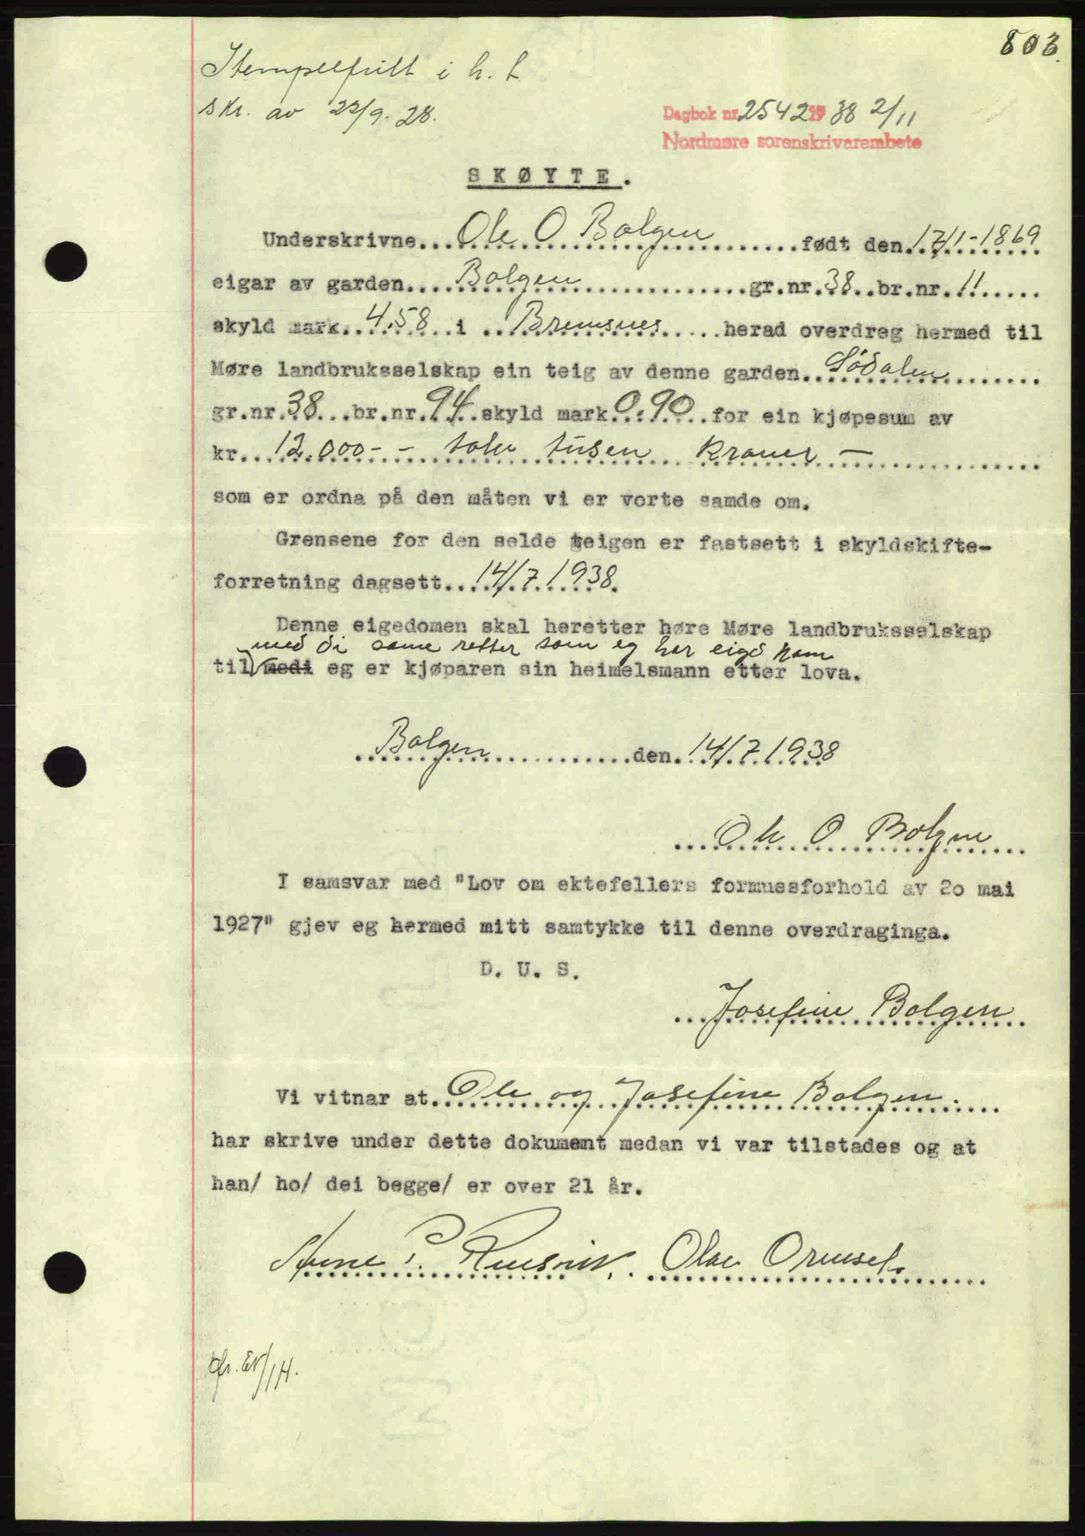 803.
Stempelfritt i h. t.
skr. av 22/9. 28.
Dagbok nr. 2542 1938 2/11
Nordmøre sorenskrivarembete
SKØYTE.
Underskrivne...Ole O Bolgen...født den.17/1-1869
eigar av garden...Bolgen...gr.nr.38..br.nr.11.....
skyld mark..4.58..i ..Bremsnes.....herad overdreg hermed til
Møre landbruksselskap ein teig av denne garden..Södalen........
gr.nr.38...br.nr.94.skyld mark.0.90..for ein kjøpesum av
kr...12.000-- tolv tusen kroner -
som er ordna på den måten vi er vorte samde om.
Grensene for den selde teigen er fastsett i skyldskifte-
forretning dagsett..14/7.1938.
Denne eigedomen skal heretter høre Møre landbruksselskap
med di same retter som eg har eigd ham
til medi eg er kjøparen sin heimelsmann etter lova.
Bolgen..............den.14/7.1938
Ole O Bolgen
I samsvar med "Lov om ektefellers formuesforhold av 20 mai
1927" gjev eg hermed mitt samtykke til denne overdraginga.
D. U. S.
Josefine Bolgen
Vi vitnar at..Ole og Josefine Bolgen.
har skrive under dette dokument medan vi var tilstades og at
han/ ho/ dei begge/ er over 21 år.
P. Olav